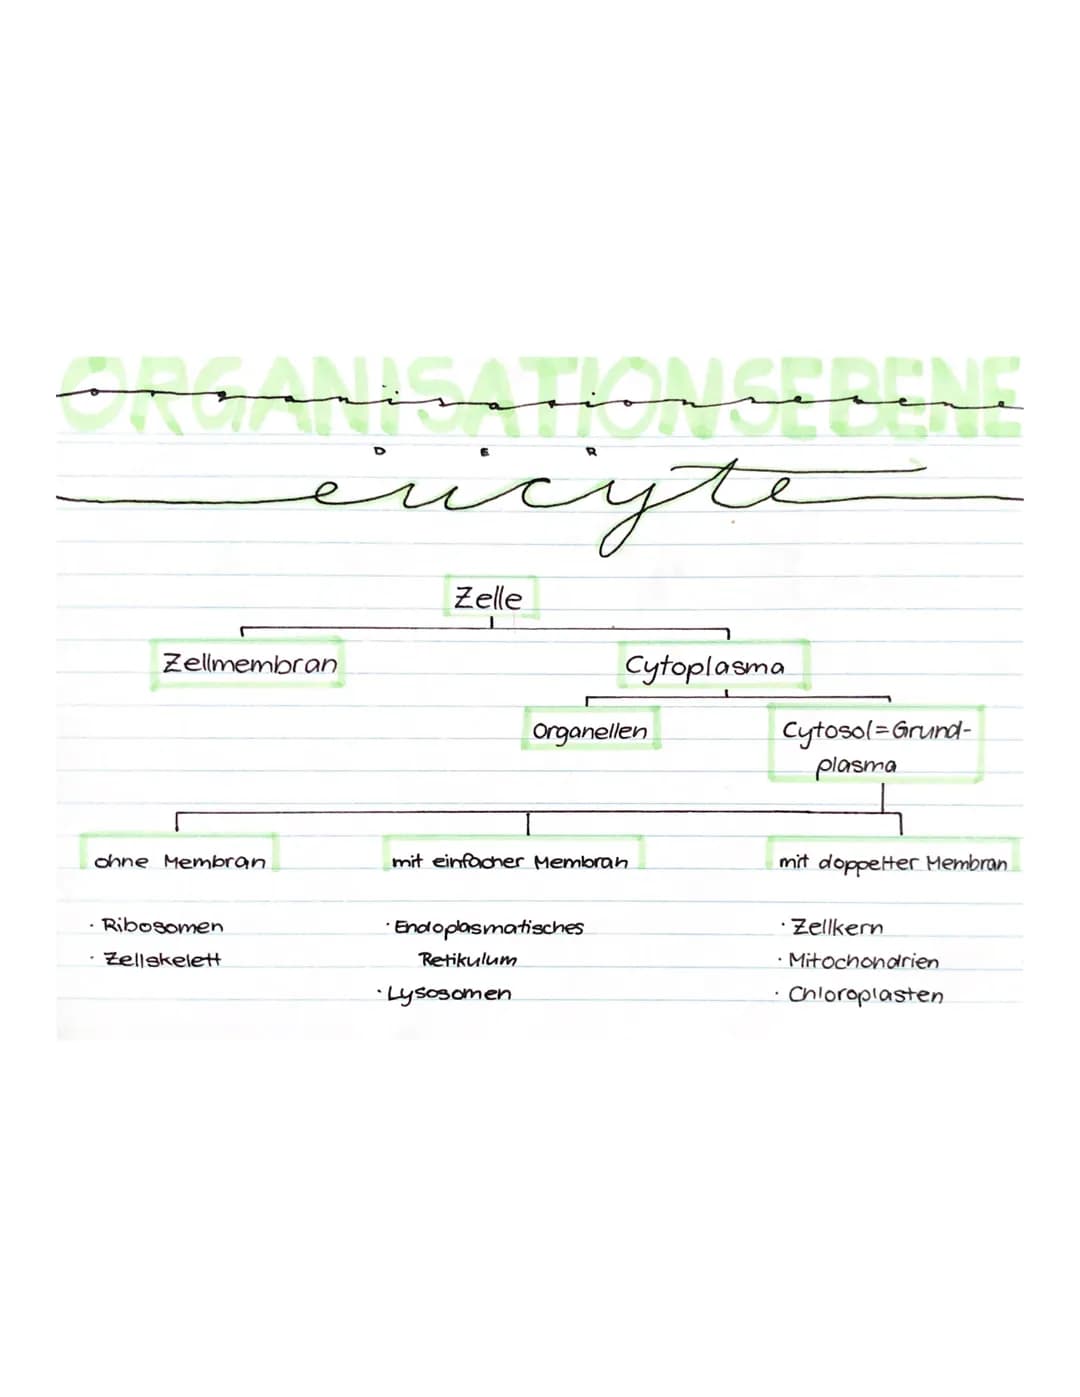 ORGANISATIONSEBENE
organisationsebene
DER
eucyte
Zelle
Zellmembran
Cytoplasma
Organellen
Cytosol=Grund-
plasma
ohne Membran
mit einfacher Membran
mit doppelter Membran
· Ribosomen
· Zellskelett
· Endoplasmatisches
Retikulum
· Lysosomen
· Zellkern
· Mitochondrien
· Chloroplasten